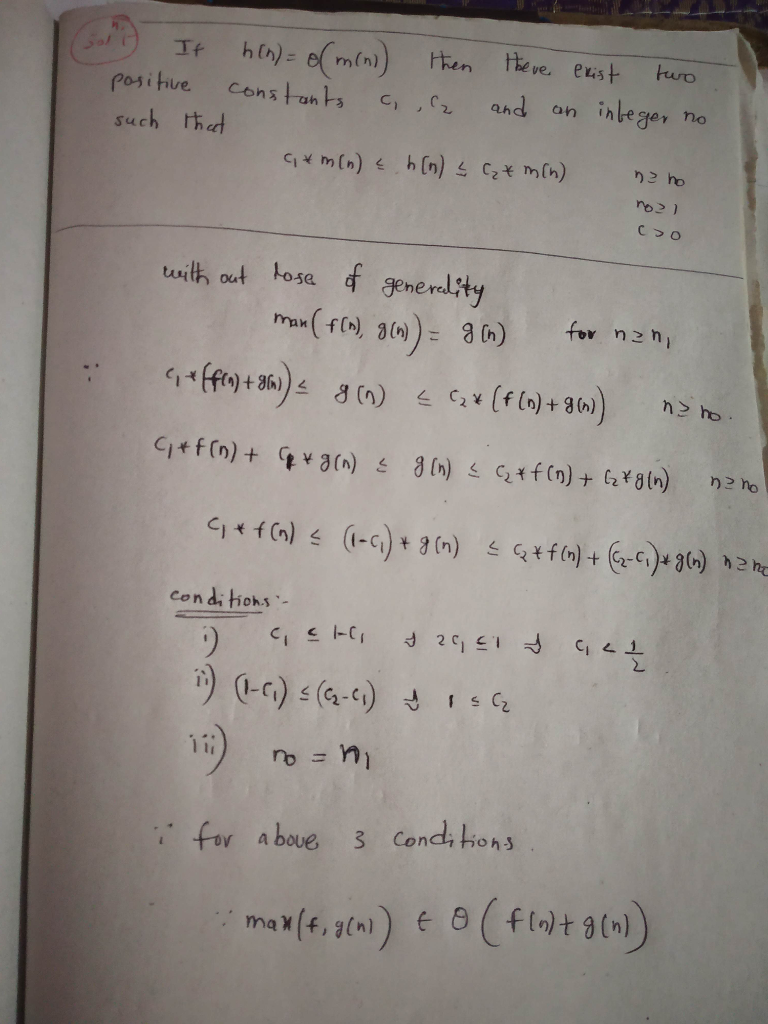 If h(n) = θ(m(n)) then there exist two
positive constants c₁, c₂ and an integer no
such that
c₁ * m(n) ≤ h(n) ≤ c₂ * m(n) n ≥ no
no ≥ 1
c > 0
with out lose of generality
max(f(n), g(n)) = g(n) for n ≥ n₁
∵ c₁ * (f(n) + g(n)) ≤ g(n) ≤ c₂ * (f(n) + g(n)) n ≥ no.
c₁ * f(n) + c₁ * g(n) ≤ g(n) ≤ c₂ * f(n) + c₂ * g(n) n ≥ no
c₁ * f(n) ≤ (1-c₁) * g(n) ≤ c₂ * f(n) + (c₂-c₁) * g(n) n ≥ no
conditions:-
i) c₁ ≤ 1-c₁ ⇒ 2c₁ ≤ 1 ⇒ c₁ < 1/2
ii) (1-c₁) ≤ (c₂-c₁) ⇒ 1 ≤ c₂
iii) no = n₁
∵ for above 3 conditions.
∵ max(f, g(n)) ∈ θ(f(n) + g(n))